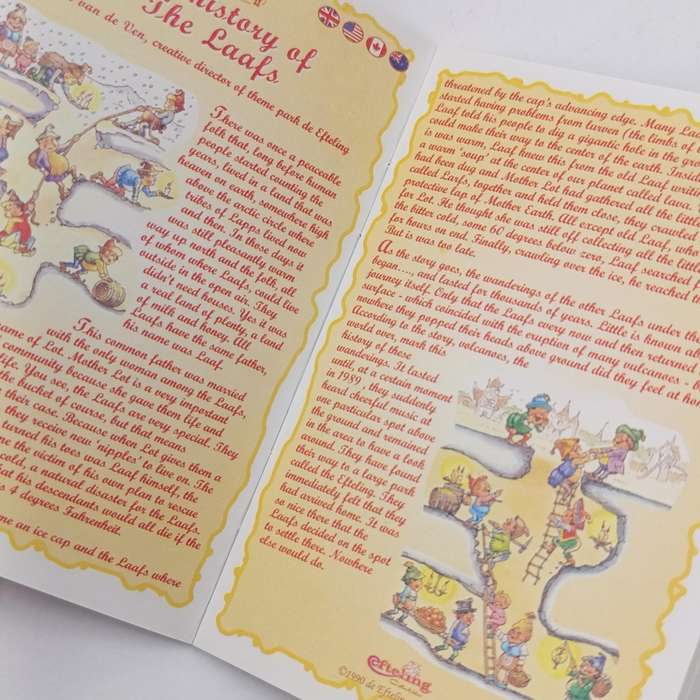 history of
The Laafs
van de Ven, creative director of theme park de Efteling
There was once a peaceable
folk that, long before human
people started counting the
years, lived in a land that was
heaven on earth, somewhere high
above the arctic circle where
tribes of Lapps lived now
and then. In those days it
was still pleasantly warm
way up north and the folk, all
of whom where Laafs, could live
outside in the open air. They
didn't need houses. Yes it was
a real land of plenty, a land
of milk and honey. All
Laafs have the same father,
his name was Laaf.
This common father was married
with the only woman among the Laafs,
ame of Lot. Mother Lot is a very important
community because she gave them life and
life. You see, the Laafs are very special. They
the bucket of course, but that means
their case. Because when Lot gives them a
they receive new 'nipples' to live on. The
turned his toes was Laaf himself, the
me the victim of his own plan to rescue
cold, a natural disaster for the Laafs.
but his descendants would all die if the
s 4 degrees Fahrenheit.
me an ice cap and the Laafs where
threatened by the cap's advancing edge. Many
started having problems from lurven (the limbs of
Laaf told his people to dig a gigantic hole in the
could make their way to the center of the earth.
is was warm, Laaf knew this from the old Laaf
a warm 'soup' at the center of our planet called lava.
had been dug and Mother Lot had gathered all the
called Lorfs, together and held them close, they crawled
protective lap of Mother Earth. All except old Laaf, who
for Lot. He thought she was still off collecting all the
the bitter cold, some 60 degrees below zero, Laaf searched
for hours on end. Finally, crawling over the ice, he reached
But is was too late.
As the story goes, the wanderings of the other Laafs under the
began...., and lasted for thousands of years. Little is known
journey itself. Only that the Laafs every now and then returned
surface - which coincided with the eruption of many vulcanoes. -
nowhere they popped their heads above ground did they feel at
According to the story, volcanoes, the
world over, mark this
history of these
wanderings. It lasted
until, at a certain moment
in 1989, they suddenly
heard cheerful music at
one particular spot above
the ground and remained
in the area to have a look
around. They have found
their way to a large park
called the Efteling. They
immediately felt that they
had arrived home. It was
so nice there that the
Laafs decided on the spot
to settle there. Nowhere
else would do.
Efteling
©1990 de Efteling